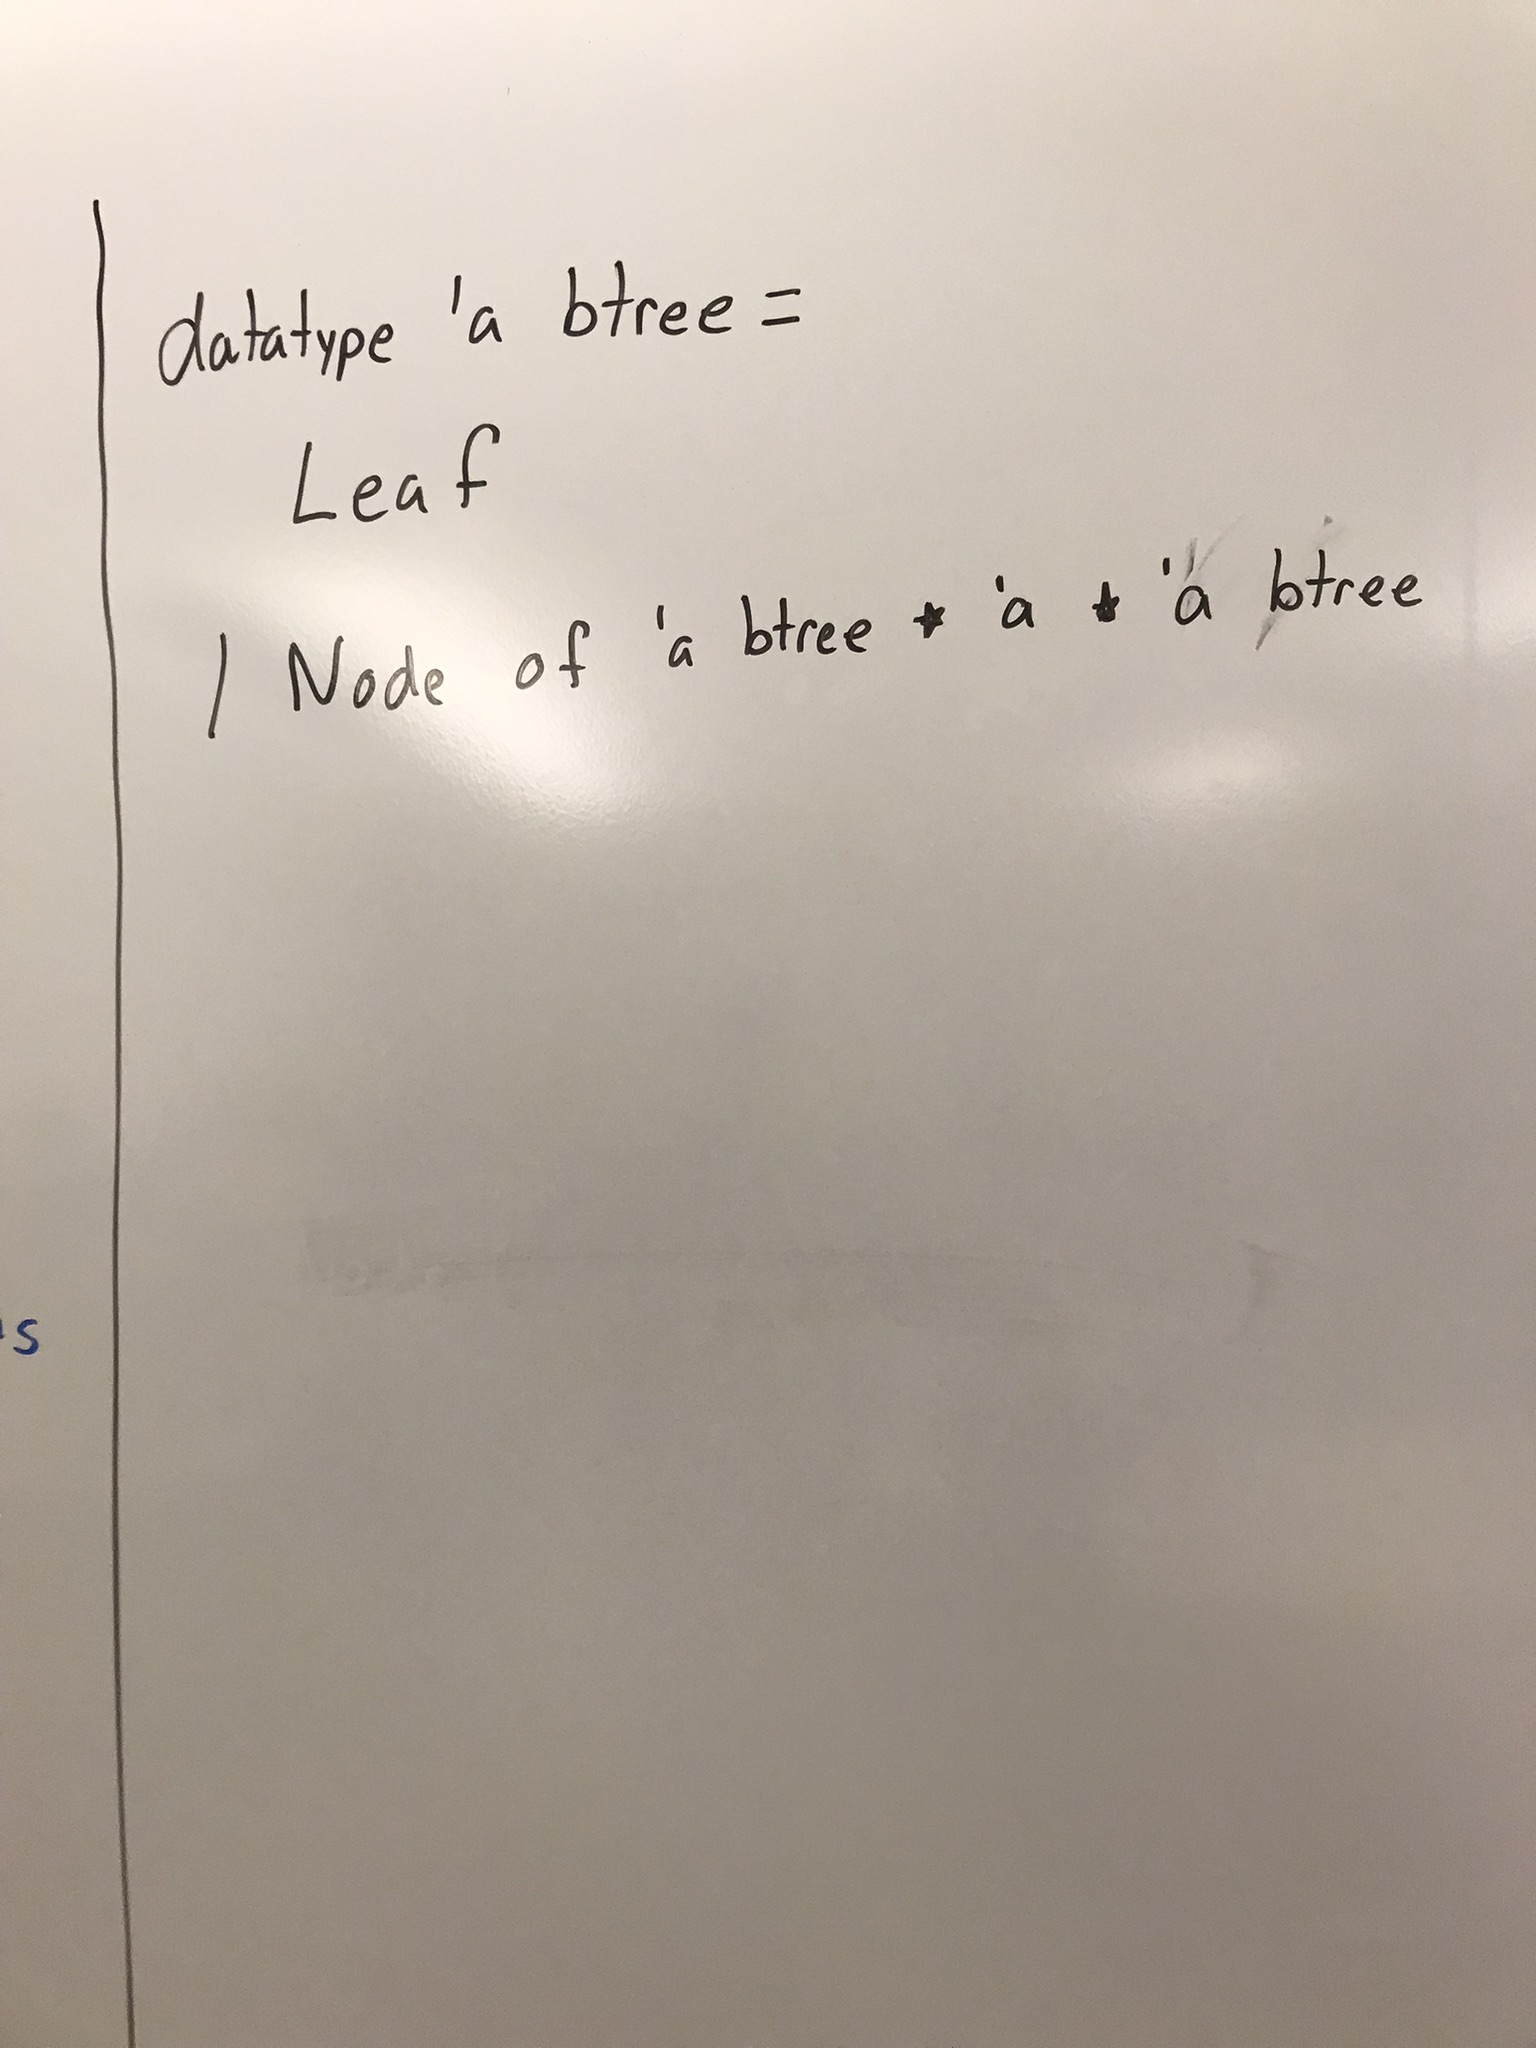 datatype 'a btree =
Leaf
| Node of 'a btree * 'a * 'a btree
s